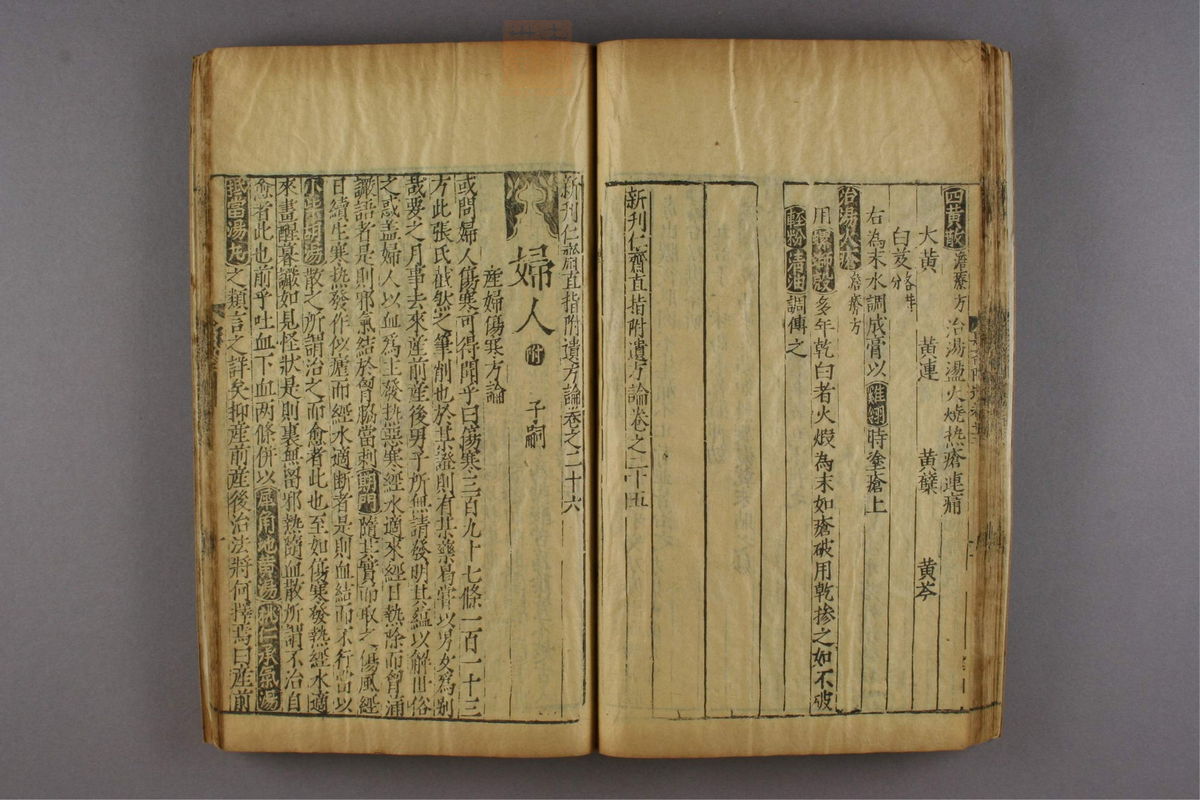 四黃散 澹寮方 治湯盪火燒热瘡連痛
大黃 黃連 黃蘗 黃芩
白芨各等分
右為末水調成膏以雞翎時塗瘡上
治湯火瘡 澹寮方
用螺螄殼多年乾白者火煆為末如瘡破用乾摻之如不破
輕粉清油調傅之
新刊仁齋直指附遺方論卷之二十五
新刊仁齋直指附遺方論卷之二十六
婦人 附 子嗣
產婦傷寒方論
或問婦人傷寒可得聞乎曰傷寒三百九十七條一百一十三
方此張氏截然之筆削也於某證則有某藥曷嘗以男女為別
哉要之月事去來產前產後男子所無請發明其蘊以解世俗
之惑盖婦人以血爲主發热惡寒經水適來經日熱除而胷滿
讝語者是則邪氣結於胷脇當刺期門隨其實而取之傷風經
日續生寒热發作似瘧而經水適断者是則血結而不行當以
小柴胡湯散之所謂治之而愈者此也至如傷寒發熱經水適
來晝醒暮讝如見怪狀是則裏無留邪熱隨血散所謂不治自
愈者此也前乎吐血下血两條併以犀角地黃湯桃仁承氣湯
抵當湯丸之類言之詳矣抑産前産後治法將何擇焉曰産前